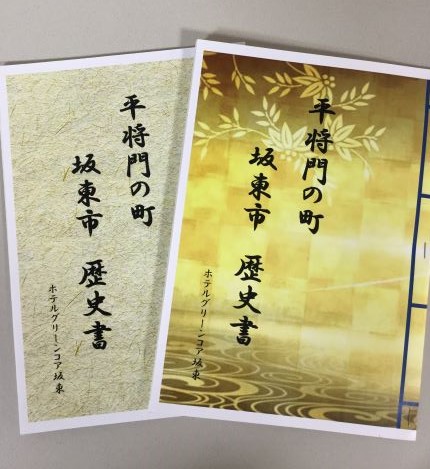 平将門の町
坂東市 歴史書
ホテルグリーンコア坂東
平将門の町
坂東市 歴史書
ホテルグリーンコア坂東